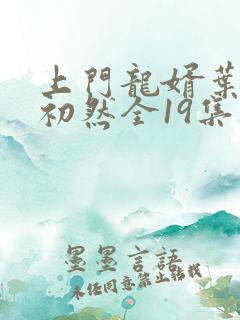 上門龍婿葉
初然全19集
墨墨言語
未任同意禁止轉載